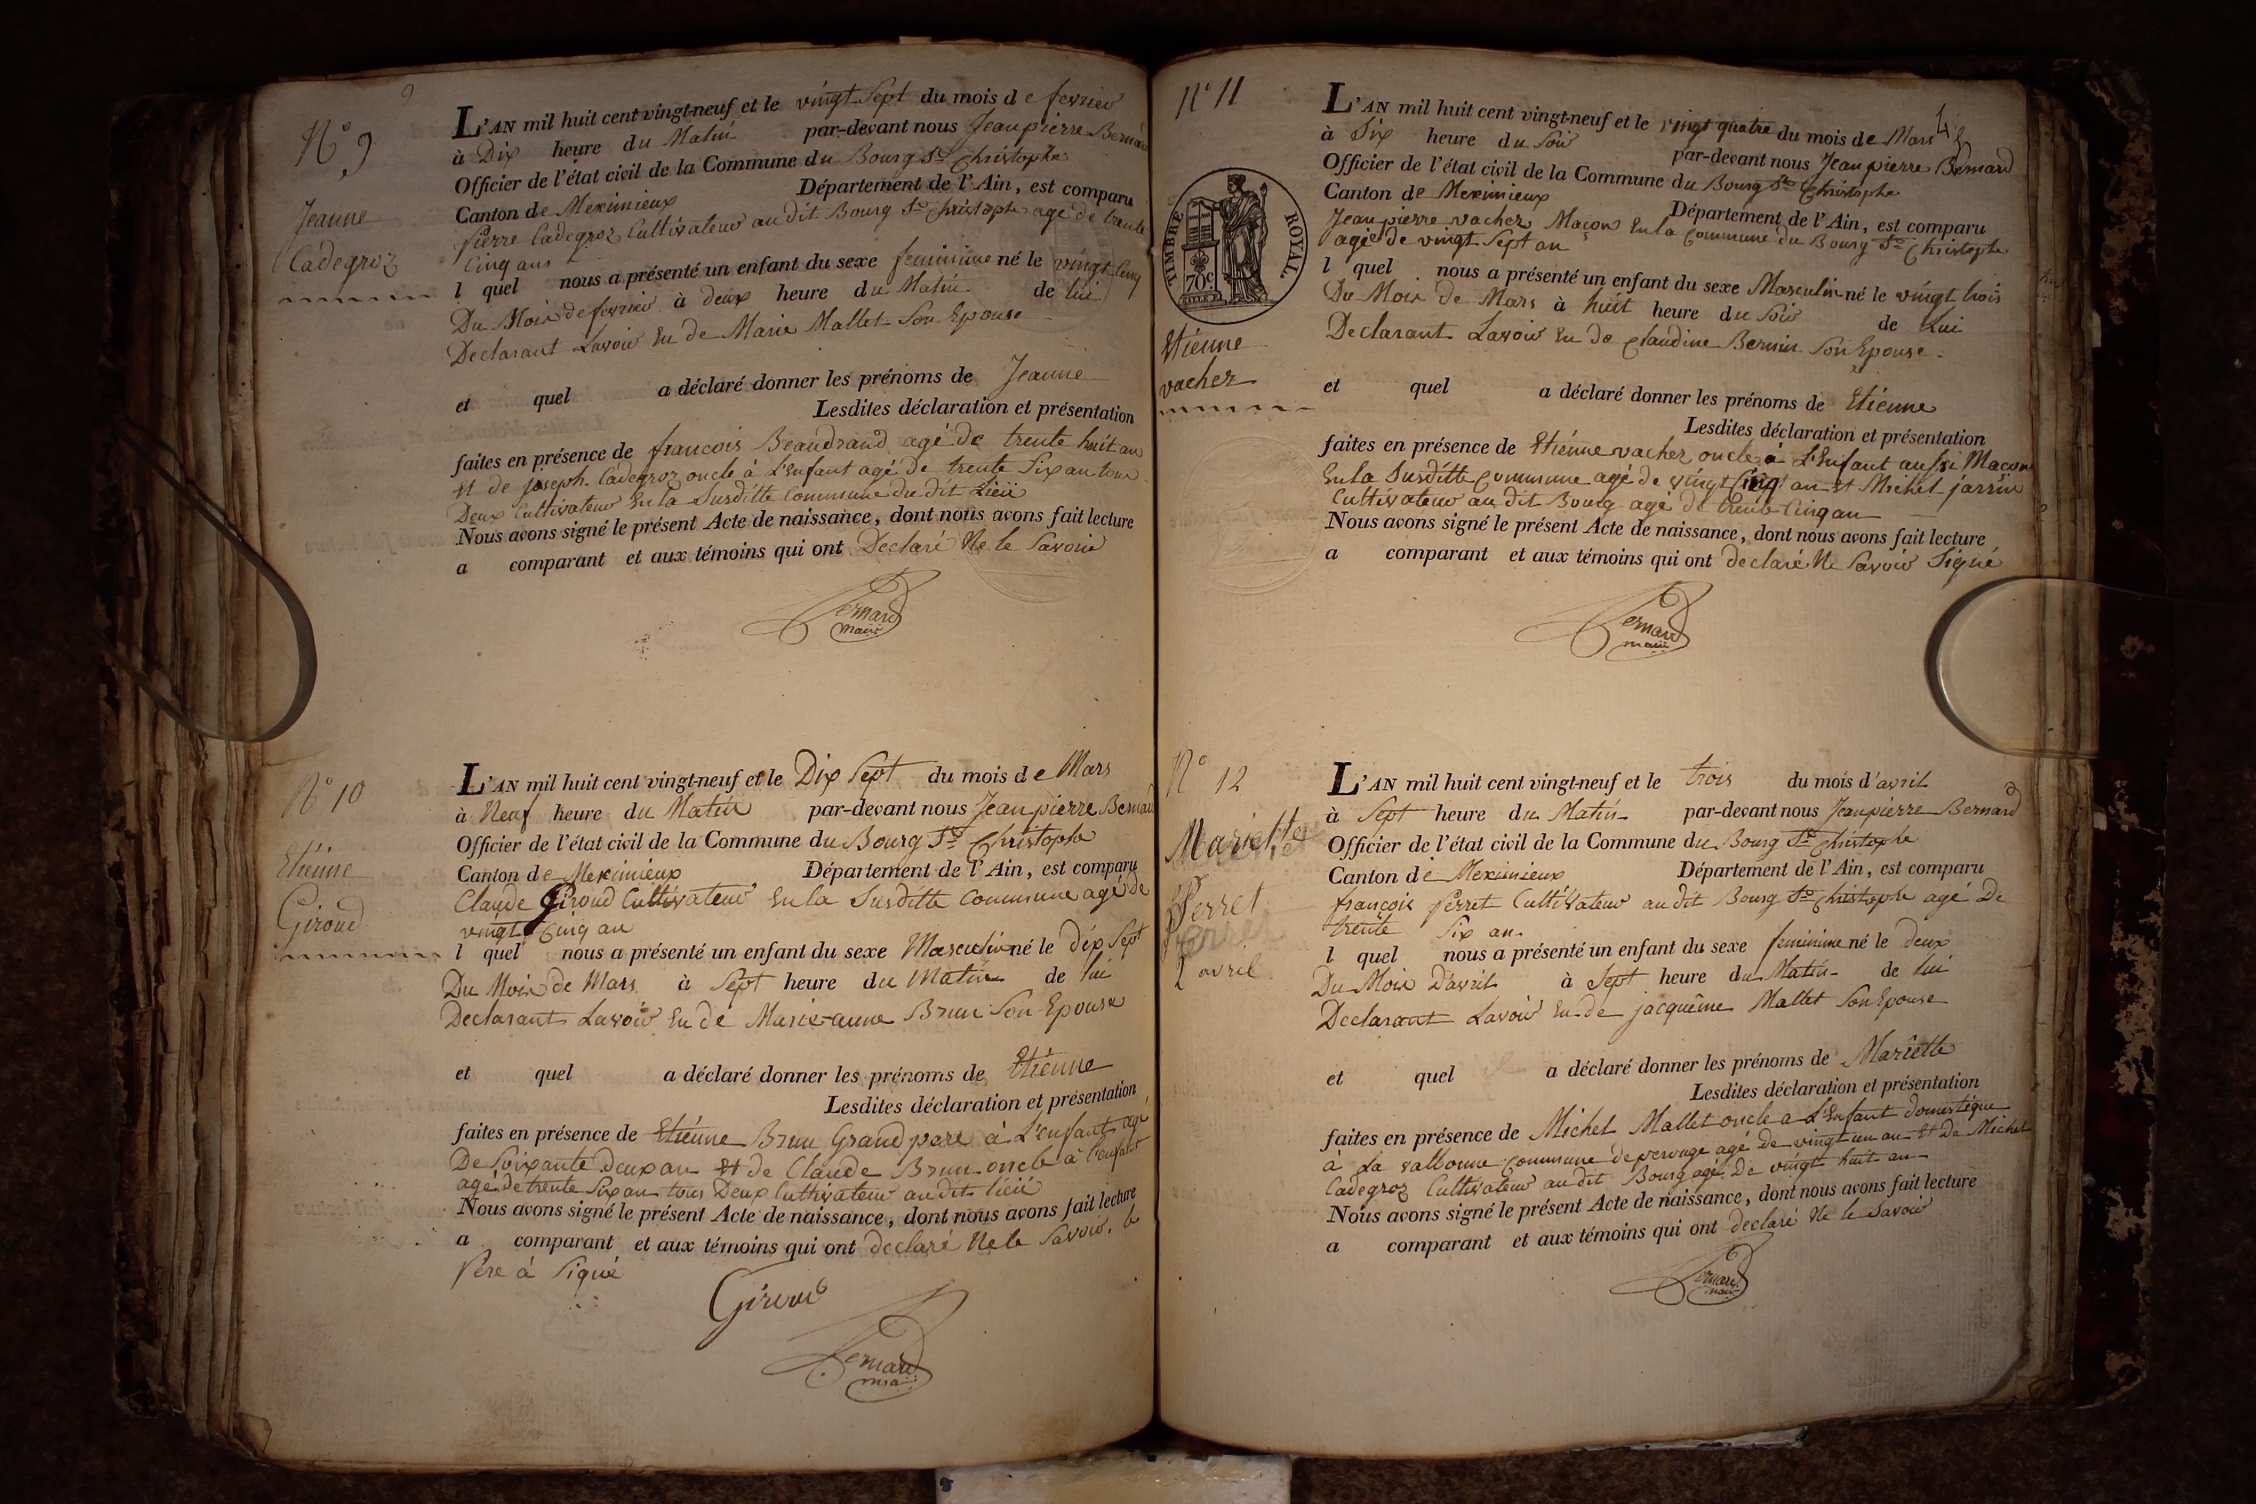 9
N° 9
Jeanne
Cadegroz
L'AN mil huit cent vingt-neuf et le vingt Sept du mois de fevrier
à Dix heure du Matin par-devant nous Jean pierre Bernard
Officier de l'état civil de la Commune du Bourg St Christophe
Canton de Meximieux Département de l'Ain, est comparu
pierre Cadegroz Cultivateur au dit Bourg St Christophe agé de trente
Cinq ans
l quel nous a présenté un enfant du sexe feminime né le vingt Cinq
Du Mois de fevrier à deux heure du Matin de lui
Declarant Lavoir Eu de Marie Mallet Son Epouse
et quel a déclaré donner les prénoms de Jeanne
Lesdites déclaration et présentation
faites en présence de francois Beaudrand agé de trente huit an
Et de joseph Cadegroz oncle à L'Enfant agé de trente Six an tous
Deux Cultivateur En la Susditte Commune du dit Lieü
Nous avons signé le présent Acte de naissance, dont nous avons fait lecture
a comparant et aux témoins qui ont Declaré Ne le Savoir
Bernard
maire
N° 10
Etiénne
Giroud
L'AN mil huit cent vingt-neuf et le Dix Sept du mois de Mars
à Neuf heure du Matin par-devant nous Jean pierre Bernard
Officier de l'état civil de la Commune du Bourg St Christophe
Canton de Meximieux Département de l'Ain, est comparu
Claude Giroud Cultivateur En la Susditte Commune agé de
vingt Cinq an
l quel nous a présenté un enfant du sexe Masculin né le dix Sept
Du Mois de Mars à Sept heure du Matin de lui
Declarant Lavoir Eu de Marie-anne Brun Son Epouse
et quel a déclaré donner les prénoms de Etiénne
Lesdites déclaration et présentation
faites en présence de Etiénne Brun Grand pere à L'enfant agé
De Soixante Deux an Et de Claude Brun oncle à l'enfant
agé de trente Six an tous Deux Cultivateur au dit lieü
Nous avons signé le présent Acte de naissance, dont nous avons fait lecture
a comparant et aux témoins qui ont declaré Ne le Savoir, le
Pére à Signé
Giroud
Bernard
maire
N° 11
TIMBRE ROYAL.
70c
Etiénne
vachez
L'AN mil huit cent vingt-neuf et le vingt quatre du mois de Mars
à Six heure du Soir par-devant nous Jean pierre Bernard
Officier de l'état civil de la Commune du Bourg St Christophe
Canton de Meximieux Département de l'Ain, est comparu
Jean pierre vachez Maçon En la Commune du Bourg St Christophe
agée de vingt Sept an
l quel nous a présenté un enfant du sexe Masculin né le vingt trois
Du Mois de Mars à huit heure du Soir de Lui
Declarant Lavoir Eu de Claudine Bernin Son Epouse
et quel a déclaré donner les prénoms de Etiénne
Lesdites déclaration et présentation
faites en présence de Etiénne vachez oncle à L'Enfant aussi Maçon
En la Susditte Commune agé de vingt Cinq an Et Michel jarrin
Cultivateur au dit Bourg agé de trente Cinq an
Nous avons signé le présent Acte de naissance, dont nous avons fait lecture
a comparant et aux témoins qui ont declaré Ne Savoir Signé
Bernard
maire
N° 12
Mariette
Perret
2 avril
L'AN mil huit cent vingt-neuf et le trois du mois d'avril
à Sept heure du Matin par-devant nous Jean pierre Bernard
Officier de l'état civil de la Commune du Bourg St Christophe
Canton de Meximieux Département de l'Ain, est comparu
françois Perret Cultivateur au dit Bourg St Christophe agé De
trente Six an
l quel nous a présenté un enfant du sexe feminime né le deux
Du Mois D'avril à Sept heure du Matin de lui
Declarant Lavoir Eu de jacquéme Mallet Son Epouse
et quel a déclaré donner les prénoms de Mariette
Lesdites déclaration et présentation
faites en présence de Michel Mallet oncle a L'Enfant domestique
à La valbonne Commune de perouge agé de vingt un an Et De Michel
Cadegroz Cultivateur au dit Bourg agé De vingt huit an
Nous avons signé le présent Acte de naissance, dont nous avons fait lecture
a comparant et aux témoins qui ont declaré Ne le Savoir
Bernard
maire